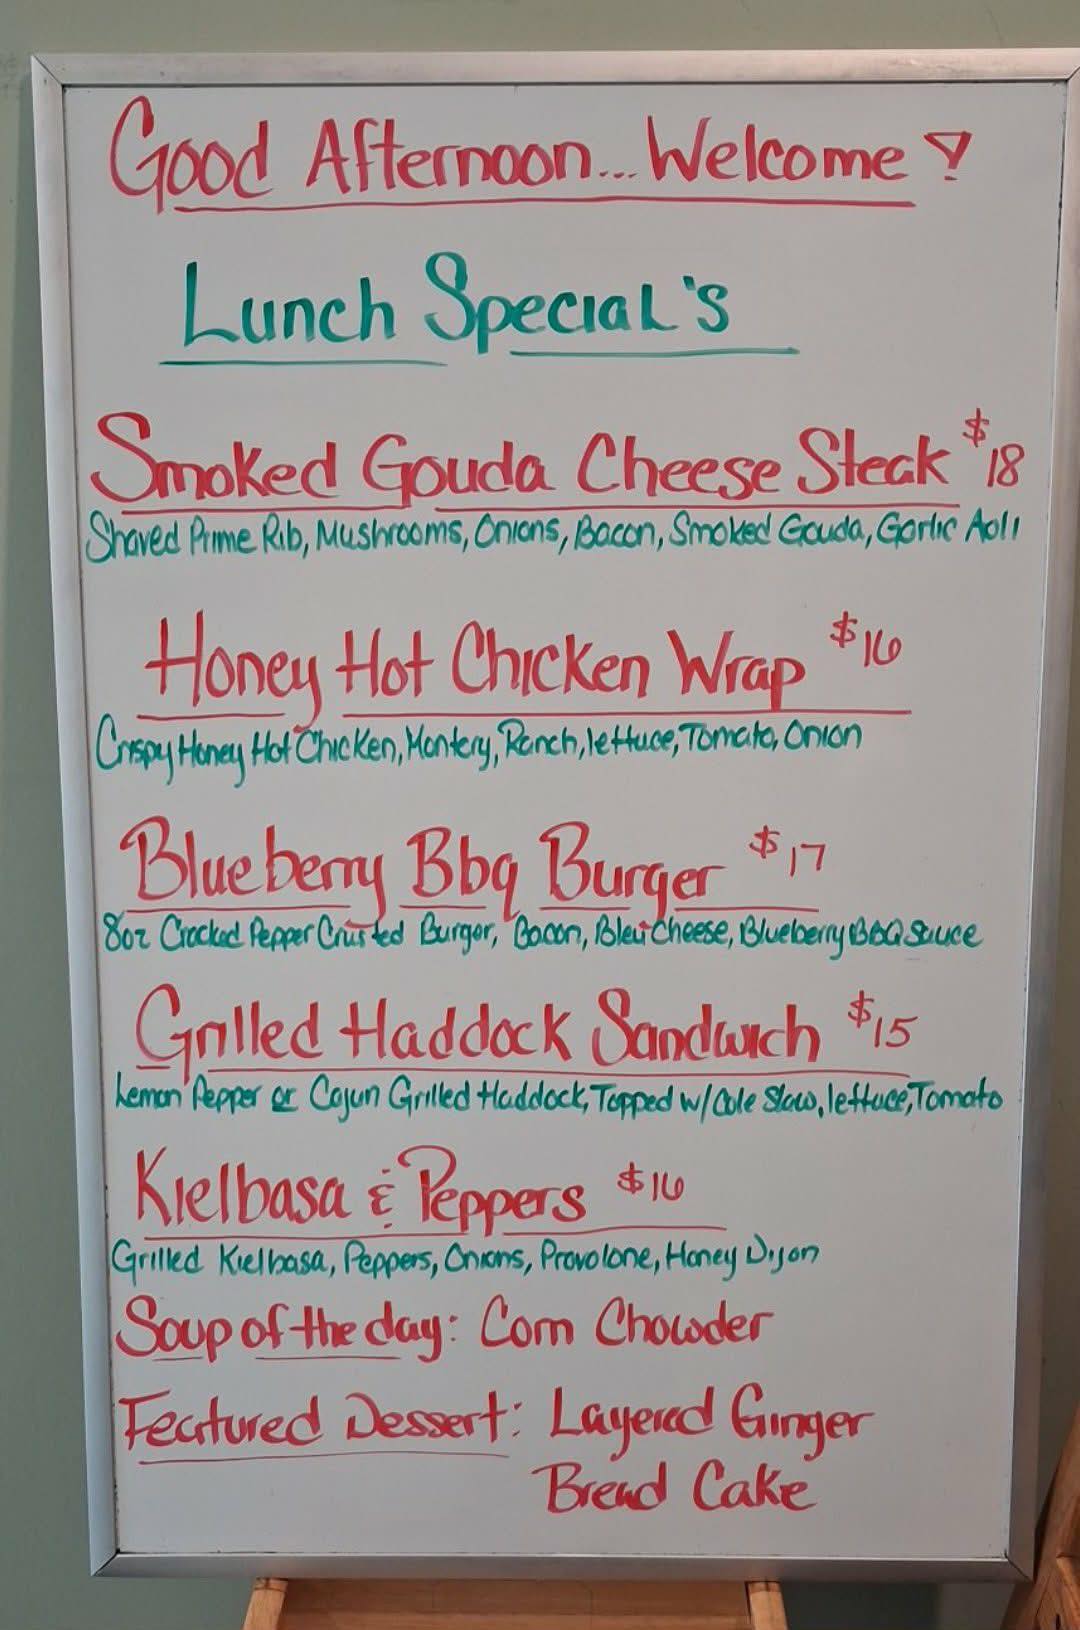 Good Afternoon... Welcome!
Lunch Special's
Smoked Gouda Cheese Steak $18
Shaved Prime Rib, Mushrooms, Onions, Bacon, Smoked Gouda, Garlic Aoli
Honey Hot Chicken Wrap $16
Crispy Honey Hot Chicken, Montery, Ranch, lettuce, Tomato, Onion
Blueberry Bbq Burger $17
8oz Cracked Pepper Crusted Burger, Bacon, Bleu Cheese, Blueberry BBQ Sauce
Grilled Haddock Sandwich $15
Lemon Pepper or Cajun Grilled Haddock, Topped w/ Cole Slaw, lettuce, Tomato
Kielbasa & Peppers $16
Grilled Kielbasa, Peppers, Onions, Provolone, Honey Dijon
Soup of the day: Corn Chowder
Featured Dessert: Layered Ginger
Bread Cake